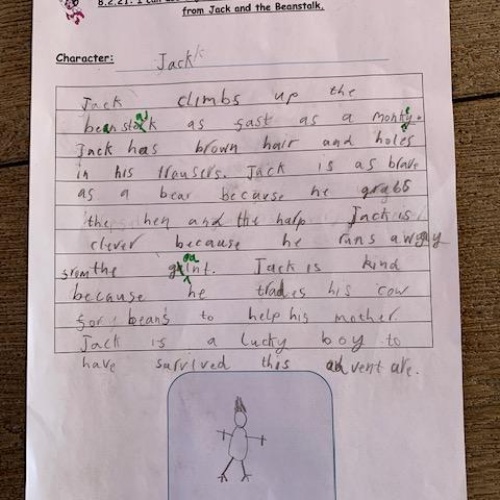 8.2.21: I can
from Jack and the Beanstalk.
Character: Jack
Jack climbs up the
beanstalk as fast as a monkey.
Jack has brown hair and holes
in his trousers. Jack is as brave
as a bear because he grabs
the hen and the harp Jack is
clever because he runs away
from the gaint. Jack is kind
because he trades his cow
for beans to help his mother
Jack is a lucky boy to
have survived this adventure.